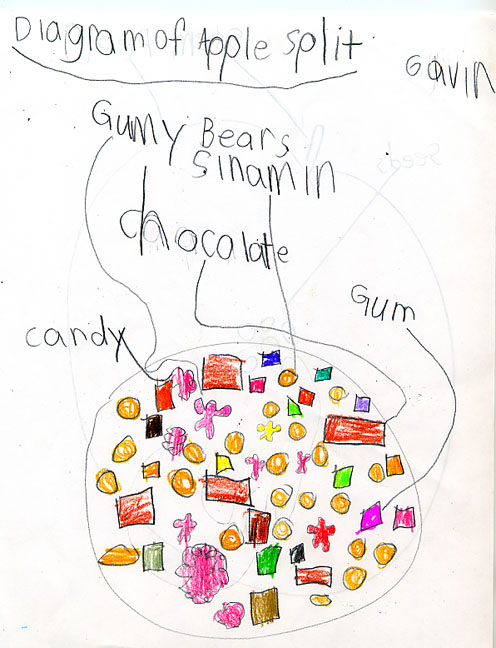 Diagram of Apple split
Gavin
Gumy Bears
Sinamin
chocolate
Gum
candy
Seeds